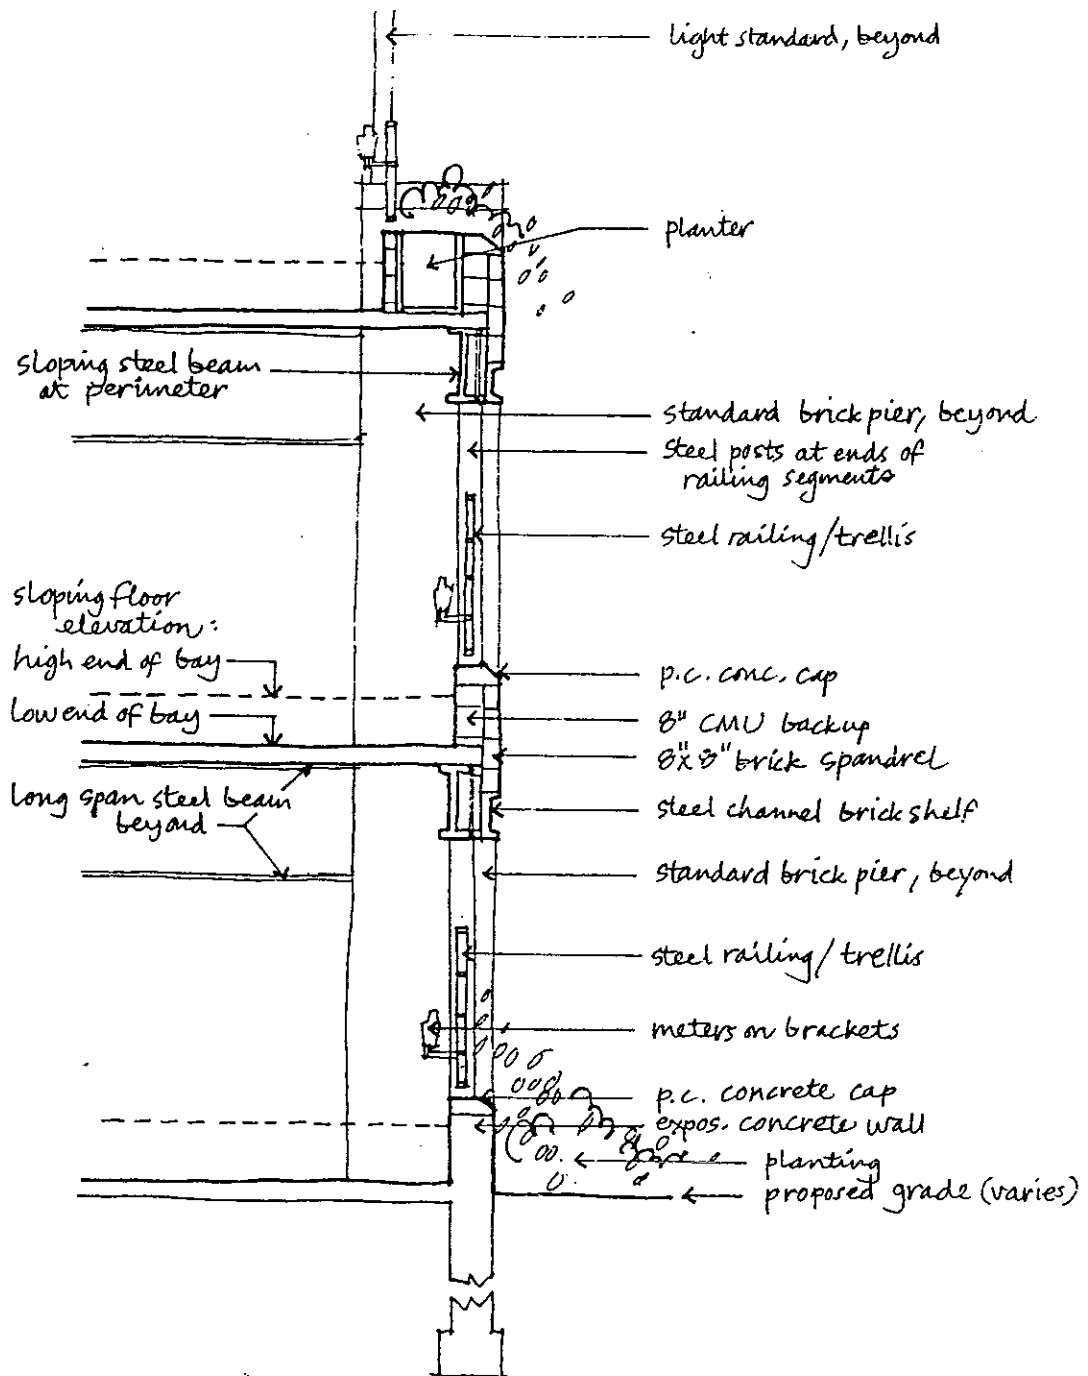 light standard, beyond
planter
sloping steel beam
at perimeter
standard brick pier, beyond
steel posts at ends of
railing segments
steel railing/trellis
sloping floor
elevation:
high end of bay
low end of bay
p.c. conc. cap
8" CMU backup
8"x8" brick spandrel
long span steel beam
beyond
steel channel brick shelf
standard brick pier, beyond
steel railing/trellis
meters on brackets
p.c. concrete cap
expos. concrete wall
planting
proposed grade (varies)